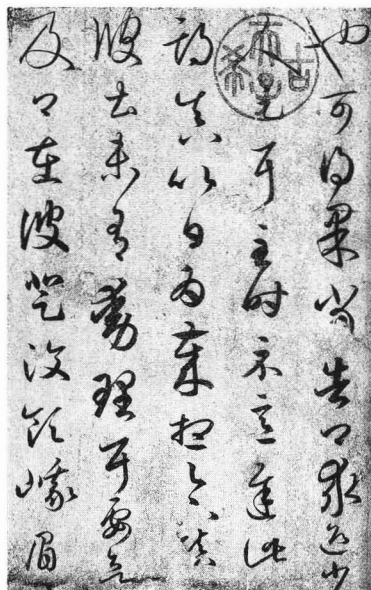 也可得果當告卿求迎少
人足耳至時示意遲此
期真以日為歲想足下鎮
彼土未有動理耳要欲
及卿在彼登汶領峨眉
古希天子